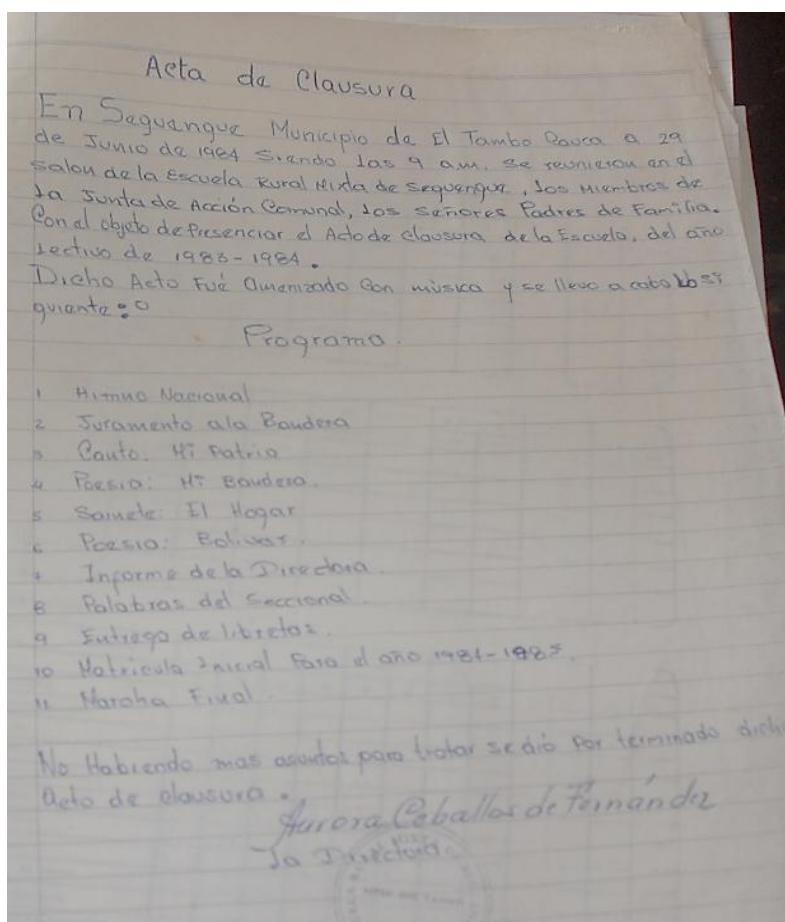 Acta de Clausura
En Seguengue Municipio de El Tambo Cauca a 29
de Junio de 1984 siendo las 9 a.m. se reunieron en el
salon de la Escuela Rural Mixta de Seguengue, los Miembros de
la Junta de Acción Comunal, los señores Padres de Familia.
Con el objeto de Presenciar el Acto de clausura de la Escuela, del año
lectivo de 1983-1984.
Dicho Acto Fué Amenizado Con música y se llevo a cabo lo si
guiente:
Programa.
1 Himno Nacional
2 Juramento ala Bandera
3 Canto: Mi Patria
4 Poesia: Mi Bandera.
5 Sainete: El Hogar
6 Poesia: Bolivar.
7 Informe de la Directora.
8 Palabras del Seccional.
9 Entrega de libretas.
10 Matricula Inicial Para el año 1984-1985.
11 Marcha Final.
No Habiendo mas asuntos para tratar se dió Por terminado dich
acto de clausura.
Aurora Ceballos de Fernández
La Directora.